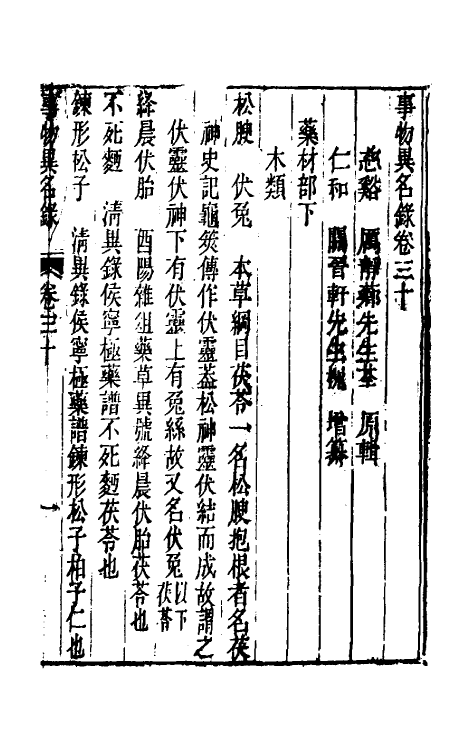 事物異名錄卷三十
慈谿 厲靜薌先生荃 原輯
仁和 關晉軒先生槐 增纂
藥材部下
木類
松腴 伏兔 本草綱目茯苓一名松腴抱根者名茯
神史記龜筴傳作伏靈葢松神靈伏結而成故謂之
伏靈伏神下有伏靈上有兔絲故又名伏兔以下茯苓
絳晨伏胎 酉陽雜俎藥草異號絳晨伏胎茯苓也
不死麪 清異錄侯寧極藥譜不死麪茯苓也
鍊形松子 清異錄侯寧極藥譜鍊形松子柏子仁也
事物異名錄 卷三十 一